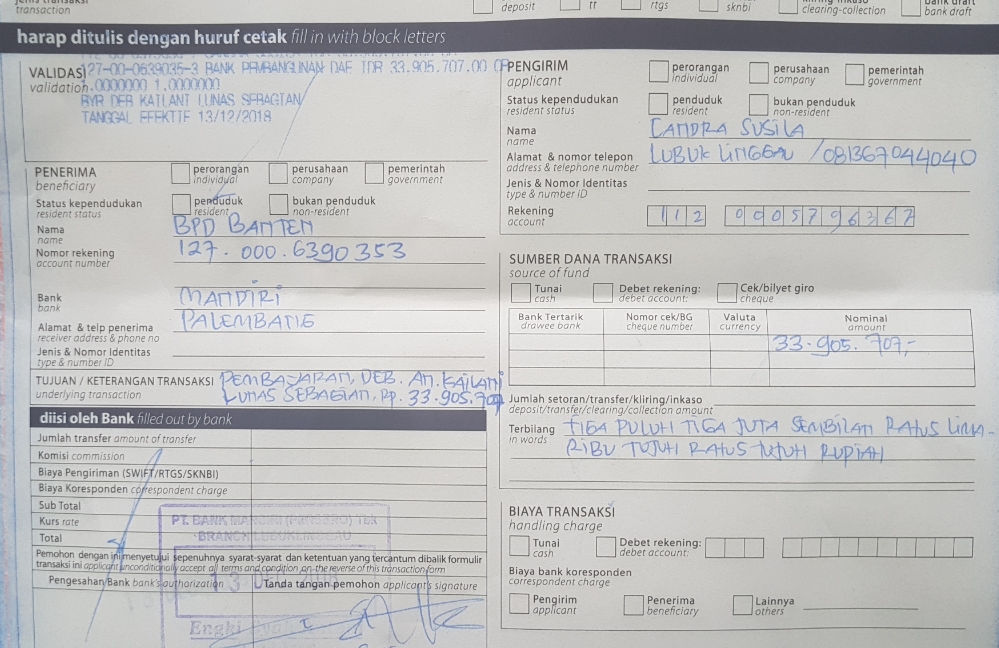 transaction
deposit
tt
rtgs
sknbi
clearing-collection
bank draft
harap ditulis dengan huruf cetak fill in with block letters
VALIDASI
validation
127-00-0639035-3 BANK PEMBANGUNAN DAE IDR 33.905.707.00
.0000000 1.0000000
BYR DEB KATLANT LUNAS SEBAGIAN
TANGGAL EFEKTIF 13/12/2018
PENERIMA
beneficiary
perorangan
individual
perusahaan
company
pemerintah
government
Status kependudukan
resident status
penduduk
resident
bukan penduduk
non-resident
Nama
name
BPD BANTEN
Nomor rekening
account number
127.000.6390353
Bank
bank
MANDIRI
Alamat & telp penerima
receiver address & phone no
PALEMBANG
Jenis & Nomor Identitas
type & number ID
TUJUAN / KETERANGAN TRANSAKSI
underlying transaction
PEMBAYARAN, DEB. AN. KAILANI
LUNAS SEBAGIAN, Rp. 33.905.707
diisi oleh Bank filled out by bank
Jumlah transfer amount of transfer
Komisi commission
Biaya Pengiriman (SWIFT/RTGS/SKNBI)
Biaya Koresponden correspondent charge
Sub Total
Kurs rate
Total
Pemohon dengan ini menyetujui sepenuhnya syarat-syarat dan ketentuan yang tercantum dibalik formulir
transaksi ini applicant unconditionally accept all terms and condition on the reverse of this transaction form
Pengesahan Bank bank's authorization
Tanda tangan pemohon applicant's signature
PT. BANK MANDIRI (PERSERO) Tbk
BRANCH LUBUKLINGGAU
13 DEC 2018
Engki
PENGIRIM
applicant
perorangan
individual
perusahaan
company
pemerintah
government
Status kependudukan
resident status
penduduk
resident
bukan penduduk
non-resident
Nama
name
CANDRA SUSILA
Alamat & nomor telepon
address & telephone number
LUBUK LINGGAU / 081367044040
Jenis & Nomor Identitas
type & number ID
Rekening
account
112 0005796367
SUMBER DANA TRANSAKSI
source of fund
Tunai
cash
Debet rekening:
debet account:
Cek/bilyet giro
cheque
Bank Tertarik
drawee bank
Nomor cek/BG
cheque number
Valuta
currency
Nominal
amount
33.905.707,-
Jumlah setoran/transfer/kliring/inkaso
deposit/transfer/clearing/collection amount
Terbilang
in words
TIGA PULUH TIGA JUTA SEMBILAN RATUS LIMA-
RIBU TUJUH RATUS TUJUH RUPIAH
BIAYA TRANSAKSI
handling charge
Tunai
cash
Debet rekening:
debet account:
Biaya bank koresponden
correspondent charge
Pengirim
applicant
Penerima
beneficiary
Lainnya
others